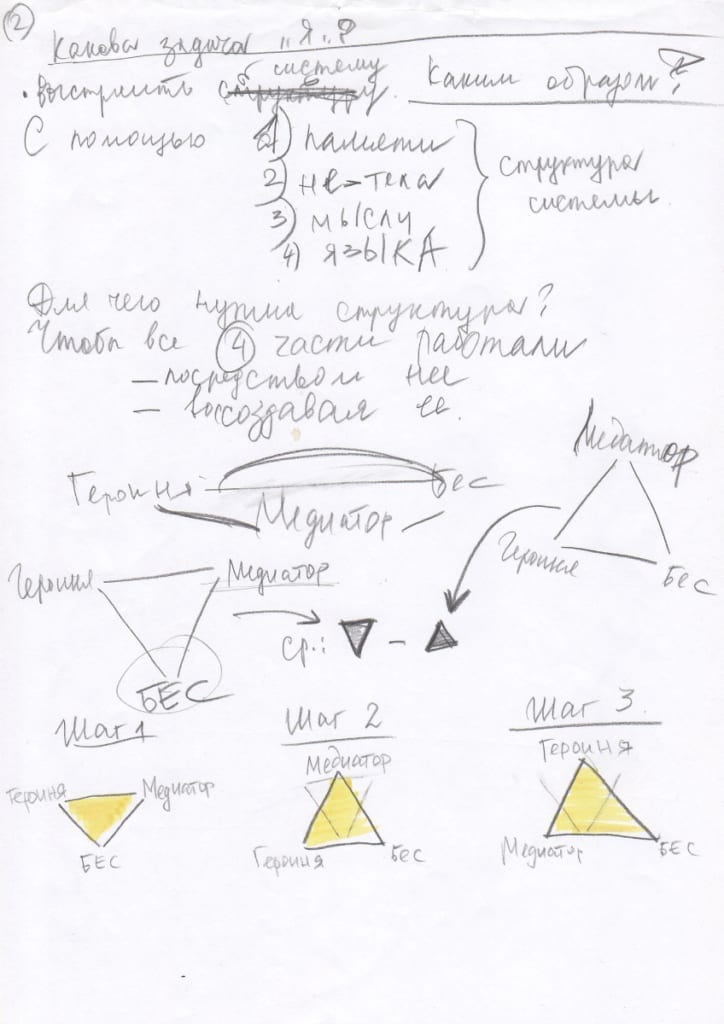 2
Какова задача „Я"?
• выстроить систему
структуру. Каким образом?
С помощью 1) памяти
2) не-тела
3) мысли
4) языка
структура
системы.
Для чего нужна структура?
Чтобы все 4 части работали
— посредством нее
— воссоздавая ее.
Медиатор
Героиня Бес
Медиатор
Героиня
Бес
Героиня Медиатор
ср.: –
БЕС
Шаг 1 Шаг 2 Шаг 3.
Медиатор Героиня
Героиня Медиатор
БЕС Героиня Бес Медиатор БЕС